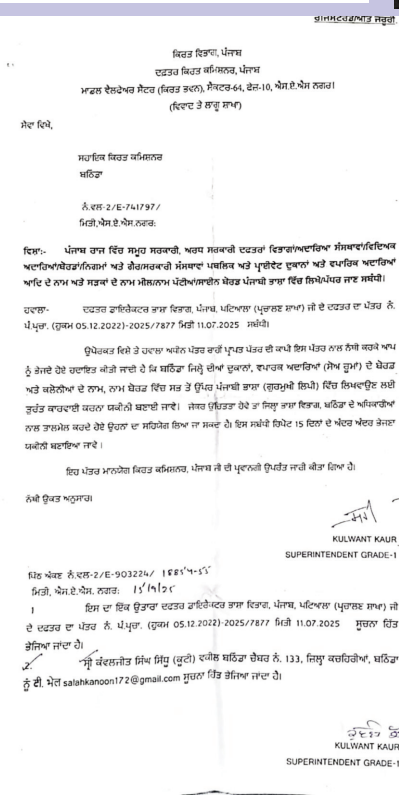 ਰਜਿਸਟਰਡ/ਅਤਿ ਜ਼ਰੂਰੀ.
ਕਿਰਤ ਵਿਭਾਗ, ਪੰਜਾਬ
ਦਫਤਰ ਕਿਰਤ ਕਮਿਸ਼ਨਰ, ਪੰਜਾਬ
ਮਾਡਲ ਵੈਲਫੇਅਰ ਸੈਂਟਰ (ਕਿਰਤ ਭਵਨ), ਸੈਕਟਰ-64, ਫੇਜ਼-10, ਐਸ.ਏ.ਐਸ ਨਗਰ।
(ਵਿਵਾਦ ਤੇ ਲਾਗੂ ਸ਼ਾਖਾ)
ਸੇਵਾ ਵਿਖੇ,
ਸਹਾਇਕ ਕਿਰਤ ਕਮਿਸ਼ਨਰ
ਬਠਿੰਡਾ
ਨੰ.ਵਲ-2/E-741797/
ਮਿਤੀ,ਐਸ.ਏ.ਐਸ.ਨਗਰ:
ਵਿਸ਼ਾ:- ਪੰਜਾਬ ਰਾਜ ਵਿੱਚ ਸਮੂਹ ਸਰਕਾਰੀ, ਅਰਧ ਸਰਕਾਰੀ ਦਫਤਰਾਂ ਵਿਭਾਗਾਂ/ਅਦਾਰਿਆ ਸੰਸਥਾਵਾਂ/ਵਿਦਿਅਕ
ਅਦਾਰਿਆਂ/ਬੋਰਡਾਂ/ਨਿਗਮਾਂ ਅਤੇ ਗੈਰ/ਸਰਕਾਰੀ ਸੰਸਥਾਵਾਂ ਪਬਲਿਕ ਅਤੇ ਪ੍ਰਾਈਵੇਟ ਦੁਕਾਨਾਂ ਅਤੇ ਵਪਾਰਿਕ ਅਦਾਰਿਆਂ
ਆਦਿ ਦੇ ਨਾਮ ਅਤੇ ਸੜਕਾਂ ਦੇ ਨਾਮ ਮੀਲ/ਨਾਮ ਪੱਟੀਆਂ/ਸਾਈਨ ਬੋਰਡ ਪੰਜਾਬੀ ਭਾਸ਼ਾ ਵਿੱਚ ਲਿਖੇ/ਪੱਧਰ ਜਾਣ ਸਬੰਧੀ।
ਹਵਾਲਾ- ਦਫਤਰ ਡਾਇਰੈਕਟਰ ਭਾਸ਼ਾ ਵਿਭਾਗ, ਪੰਜਾਬ, ਪਟਿਆਲਾ (ਪ੍ਰਚਾਲਣ ਸ਼ਾਖਾ) ਜੀ ਦੇ ਦਫਤਰ ਦਾ ਪੱਤਰ ਨੰ.
ਪੰ.ਪ੍ਰਚਾ. (ਹੁਕਮ 05.12.2022)-2025/7877 ਮਿਤੀ 11.07.2025 ਸਬੰਧੀ।
ਉਪਰੋਕਤ ਵਿਸ਼ੇ ਤੇ ਹਵਾਲਾ ਅਧੀਨ ਪੱਤਰ ਰਾਹੀਂ ਪ੍ਰਾਪਤ ਪੱਤਰ ਦੀ ਕਾਪੀ ਇਸ ਪੱਤਰ ਨਾਲ ਨੱਥੀ ਕਰਕੇ ਆਪ
ਨੂੰ ਭੇਜਦੇ ਹੋਏ ਹਦਾਇਤ ਕੀਤੀ ਜਾਂਦੀ ਹੈ ਕਿ ਬਠਿੰਡਾ ਜ਼ਿਲ੍ਹੇ ਦੀਆਂ ਦੁਕਾਨਾਂ, ਵਪਾਰਕ ਅਦਾਰਿਆਂ (ਸ਼ੋਅ ਰੂਮਾਂ) ਦੇ ਬੋਰਡ
ਅਤੇ ਕਲੋਨੀਆਂ ਦੇ ਨਾਮ, ਨਾਮ ਬੋਰਡ ਵਿੱਚ ਸਭ ਤੋਂ ਉੱਪਰ ਪੰਜਾਬੀ ਭਾਸ਼ਾ (ਗੁਰਮੁਖੀ ਲਿਪੀ) ਵਿੱਚ ਲਿਖਵਾਉਣ ਲਈ
ਤੁਰੰਤ ਕਾਰਵਾਈ ਕਰਨਾ ਯਕੀਨੀ ਬਣਾਈ ਜਾਵੇ। ਜੇਕਰ ਉਚਿਤਤਾ ਹੋਵੇ ਤਾਂ ਜਿਲ੍ਹਾ ਭਾਸ਼ਾ ਵਿਭਾਗ, ਬਠਿੰਡਾ ਦੇ ਅਧਿਕਾਰੀਆਂ
ਨਾਲ ਤਾਲਮੇਲ ਕਰਦੇ ਹੋਏ ਉਹਨਾਂ ਦਾ ਸਹਿਯੋਗ ਲਿਆ ਜਾ ਸਕਦਾ ਹੈ। ਇਸ ਸਬੰਧੀ ਰਿਪੋਰਟ 15 ਦਿਨਾਂ ਦੇ ਅੰਦਰ ਅੰਦਰ ਭੇਜਣਾ
ਯਕੀਨੀ ਬਣਾਇਆ ਜਾਵੇ ।
ਇਹ ਪੱਤਰ ਮਾਨਯੋਗ ਕਿਰਤ ਕਮਿਸ਼ਨਰ, ਪੰਜਾਬ ਜੀ ਦੀ ਪ੍ਰਵਾਨਗੀ ਉਪਰੰਤ ਜਾਰੀ ਕੀਤਾ ਗਿਆ ਹੈ।
ਨੱਥੀ ਉਕਤ ਅਨੁਸਾਰ।
KULWANT KAUR
SUPERINTENDENT GRADE-1
ਪਿੱਠ ਅੰਕਣ ਨੰ.ਵਲ-2/E-903224/ 18854-55
ਮਿਤੀ, ਐਸ.ਏ.ਐਸ. ਨਗਰ: 15/9/25
1 ਇਸ ਦਾ ਇੱਕ ਉਤਾਰਾ ਦਫਤਰ ਡਾਇਰੈਕਟਰ ਭਾਸ਼ਾ ਵਿਭਾਗ, ਪੰਜਾਬ, ਪਟਿਆਲਾ (ਪ੍ਰਚਾਲਣ ਸ਼ਾਖਾ) ਜੀ
ਦੇ ਦਫਤਰ ਦਾ ਪੱਤਰ ਨੰ. ਪੰ.ਪ੍ਰਚਾ. (ਹੁਕਮ 05.12.2022)-2025/7877 ਮਿਤੀ 11.07.2025 ਸੂਚਨਾ ਹਿੱਤ
ਭੇਜਿਆ ਜਾਂਦਾ ਹੈ।
2. ਸ੍ਰੀ ਕੰਵਲਜੀਤ ਸਿੰਘ ਸਿੱਧੂ (ਕੁਟੀ) ਵਕੀਲ ਬਠਿੰਡਾ ਚੈਂਬਰ ਨੰ. 133, ਜਿਲ੍ਹਾ ਕਚਹਿਰੀਆਂ, ਬਠਿੰਡਾ
ਨੂੰ ਈ. ਮੇਲ salahkanoon172@gmail.com ਸੂਚਨਾ ਹਿੱਤ ਭੇਜਿਆ ਜਾਂਦਾ ਹੈ।
KULWANT KAUR
SUPERINTENDENT GRADE-1